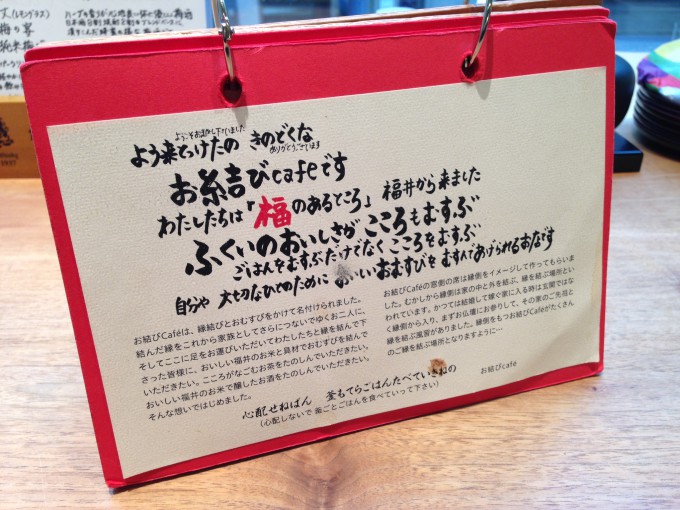 ようこそお越し下さいました
よう来とっけたの きのどくな
ありがとうございます
お糸結びcafeです
わたしたちは「福のあるところ」 福井から来ました
ふくいのおいしさが こころもむすぶ
ごはんをむすぶだけでなく こころをむすぶ
自分や 大切なひとのために おいしいおむすびを むすんであげられるお店です
お結びCaféは、縁結びとおむすびをかけて名付けられました。
結んだ縁をこれから家族としてさらにつないでゆくお二人に、
そしてここに足をお運びいただいてわたしたちと縁を結んで下
さった皆様に、おいしい福井のお米と具材でおむすびを結んで
いただきたい。こころがなごむお茶をたのしんでいただきたい。
おいしい福井のお米で醸したお酒をたのしんでいただきたい。
そんな想いではじめました。
お結びCaféの窓側の席は縁側をイメージして作ってもらいま
した。むかしから縁側は家の中と外を結ぶ、縁を結ぶ場所とい
われています。かつては結婚して嫁ぐ家に入る時は玄関ではな
く縁側から入り、まずお仏壇にお参りして、その家のご先祖と
縁を結ぶ風習がありました。縁側をもつお結びCaféがたくさん
のご縁を結ぶ場所となりますように…
お結びcafé
心配せねばん 釜もてらごはんたべていきねの
（心配しないで 釜ごとごはんを食べていって下さい）